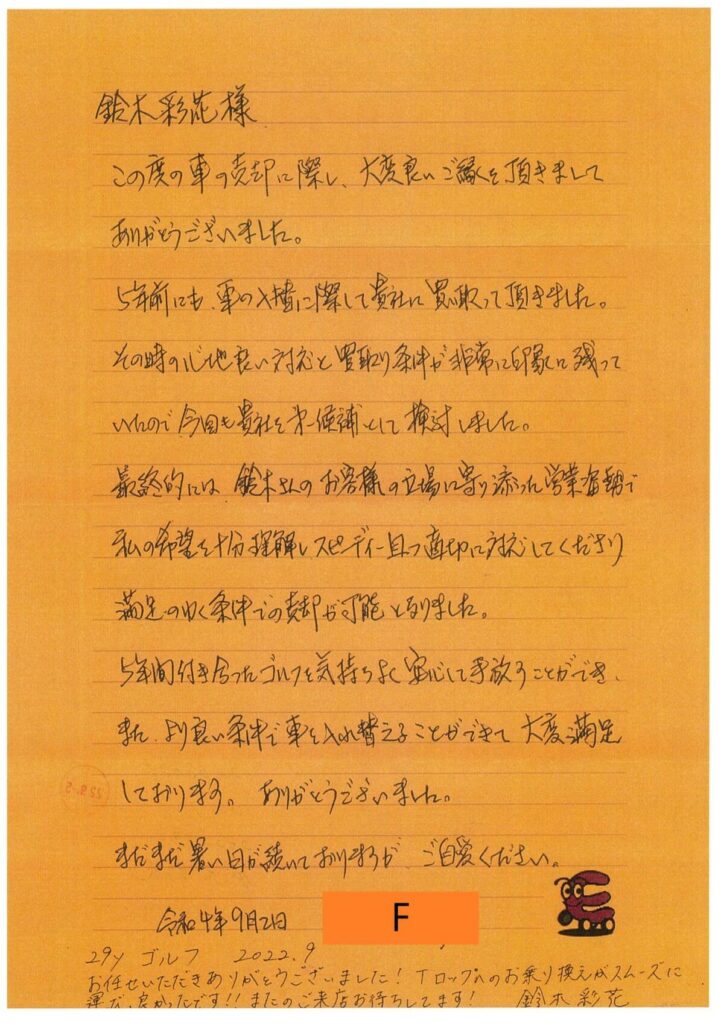 鈴木彩花様
この度の車の売却に際し、大変良いご縁を頂きまして
ありがとうございました。
5年前にも、車の入替に際して貴社に買取って頂きました。
その時の心地良い対応と買取り条件が非常に印象に残って
いたので今回も貴社を第一候補として検討しました。
最終的には、鈴木さんのお客様の立場に寄り添った営業活動で
私の希望を十分理解しスピーディー且つ適切に対応してくださり
満足のゆく条件での売却が可能となりました。
5年間付き合ったゴルフを気持ちよく安心して手放すことができ、
また、より良い条件で車を入れ替えることができて大変満足
しております。ありがとうございました。
まだまだ暑い日が続いておりますが、ご自愛ください。
令和4年9月2日
F
29y ゴルフ 2022.9
お任せいただきありがとうございました! Tロックへのお乗り換えがスムーズに
運び、良かったです!! またのご来店お待ちしてます! 鈴木彩花